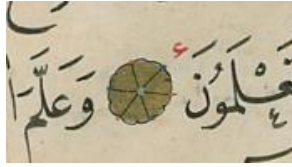 تَعْلَمُونَ ۝ وَعَلَّمَ